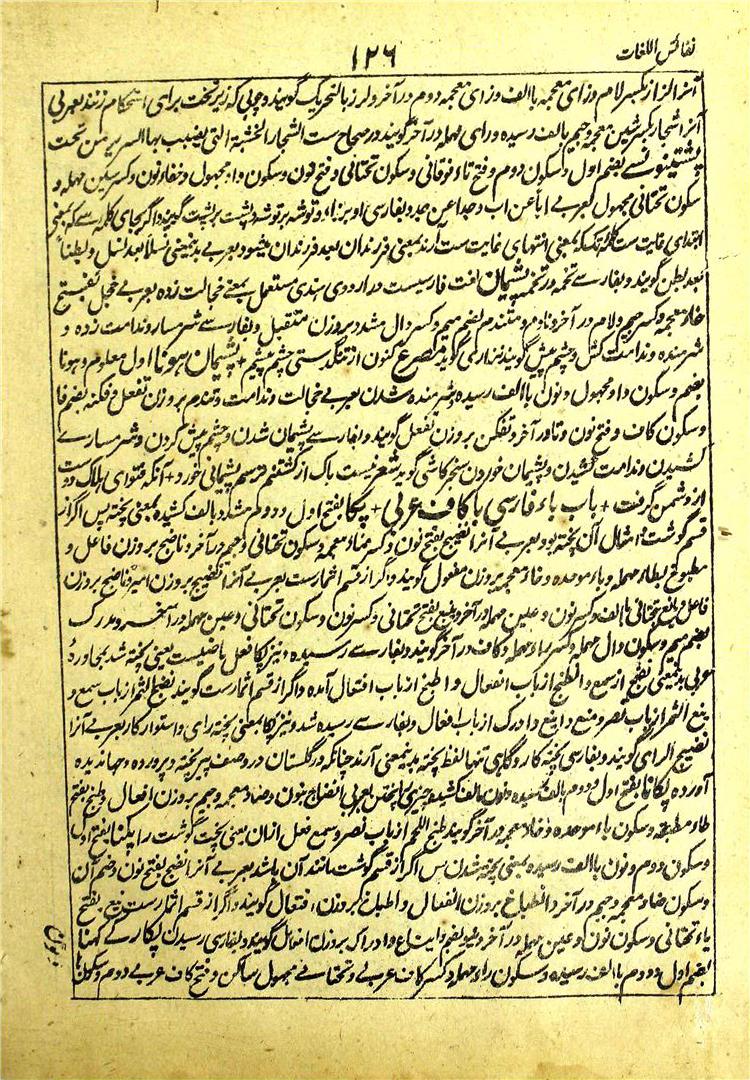 نفائس اللغات
۱۲۶
آنرا لزاز بکسر لام و زای معجمه با الف و زای معجمه دوم در آخر و لزز بالتحریک گویند و چوبی که زیر تخت برای استحکام زنند بعربی
آنرا شجار بکسر شین معجمه و جیم بالف رسیده و رای مهمله در آخر گویند در صحاح ست الشجار الخشبة التی یضبب بها السریر من تحت
پشتینونسے بضم اول و سکون دوم و فتح تاء فوقانی و سکون تحتانی و فتح نون و سکون واو مجهول و خفاء نون و کسر سین مهمله و
سکون تحتانی مجهول بعربی اباً عن اب و جداً عن جد و بفارسی
ابتدای غایت ست بمعنی انتهای غایت ست آرند بمعنی فرزندان بعد فرزندان میشود بعربی بدینمعنی نسلاً بعد نسل و بطناً
بعد بطن گویند و بفارسے تخمه در تخمه پشیمان لغت فارسیست در اردوی هندی مستعمل بمعنے خجالت زده بعربی خجل بفتح
خاء معجمه و کسر جیم و لام در آخر و نادم و متندم بضم میم و کسر دال مشدد بروزن متقبل و بفارسے شرمسار و ندامت زده و
شرمنده و ندامت کش و چشم پیش گویند ع کنون از تنگدستی چشم پیشم + پشیمان ہونا اول معلوم و ہونا
بضم و سکون واو مجهول و نون با الف رسیده شرمنده شدن بعربے خجالت و ندامت و تندم بروزن تفعل و فکنه بضم فا
و سکون کاف و فتح نون و تا در آخر و تفکن بروزن تفعل گویند و بفارسے پشیمان شدن و چشم پیش کردن و شرمسارے
کشیدن و ندامت کشیدن و پشیمان خوردن سنجر کاشی گوید شعر نیست باک از کشتنم ترسم پشیمانی خورد + آنکه فتوای هلاک دوست
از دشمن گرفت + باب باء فارسی با کاف عربی + پکا بفتح اول و دوم مشدد بالف کشیده بمعنی پخته پس اگر از
قسم گوشت و امثال آن پخته بود بعربی آنرا نضیج بفتح نون و کسر ضاد معجمه و سکون تحتانی و جیم در آخر و ناضج بروزن فاعل و
مطبوخ بطاء مهمله و باء موحده و خاء معجمه بروزن مفعول گویند و اگر از قسم اثمار ست بعربی آنرا نضیج بروزن امیر و ناضج بروزن
فاعل و یانع بتحتانی بالف و کسر نون و عین مهمله در آخر و ینیع بفتح تحتانی و کسر نون و سکون تحتانی و عین مهمله در آخر و مدرک
بضم میم و سکون دال مهمله و کسر راء مهمله و کاف در آخر گویند و بفارسے رسیده و نیز پکا فعل ماضیست یعنی پخته شد بمحاوره
عربی بدینمعنی نضج از سمع و انطبخ از باب انفعال و اطبخ از باب افتعال آمده و اگر از قسم اثمار ست گویند نضج الثمر از باب سمع و
ینع الثمر از باب نصر و منع و اینع و ادرک از باب افعال و بفارسے رسیده شد و نیز پکا بمعنی پخته رای و استوار کار بعربے آنرا
نضیج الرای گویند و بفارسی پخته کار و گاهی تنها لفظ پخته بدینمعنی آرند چنانکه در گلستان در وصف پیر پخته و پرورده و جهاندیده
آورده پکانا بفتح اول و دوم بالف کشیده و نون بالف کشیده چیزی را پختن بعربی انضاج بنون و ضاد معجمه و جیم بروزن افعال و طبخ بفتح
طاء مطبقه و سکون باء موحده و خاء معجمه در آخر گویند طبخ اللحم از باب نصر و سمع فعل ازان یعنی پخت گوشت را پکنا بفتح اول
و سکون دوم و نون با الف رسیده بمعنی پخته شدن پس اگر از قسم گوشت مانند آن باشد بعربے آنرا نضج بفتح نون و ضم آن
و سکون ضاد معجمه و جیم در آخر و انطباخ بروزن انفعال و اطباخ بروزن افتعال گویند و اگر از قسم اثمار ست ینع بفتح
یاء تحتانی و سکون نون و عین مهمله در آخر و ینوع بضم و ایناع و ادراک بروزن افعال گویند و بفارسی رسیدن پکارے کہنا
بضم اول و دوم با الف رسیده و سکون راء مهمله و کسر کاف عربے و تحتانے مجهول ساکن و فتح کاف عربے دوم و سکون